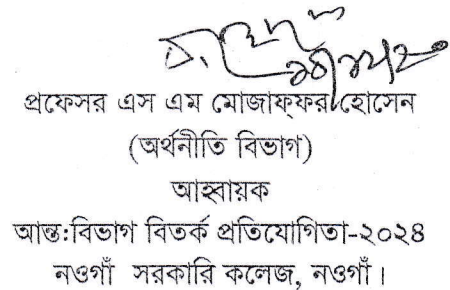 প্রফেসর এস এম মোজাফ্ফর হোসেন
(অর্থনীতি বিভাগ)
আহ্বায়ক
আন্ত:বিভাগ বিতর্ক প্রতিযোগিতা-২০২৪
নওগাঁ সরকারি কলেজ, নওগাঁ।